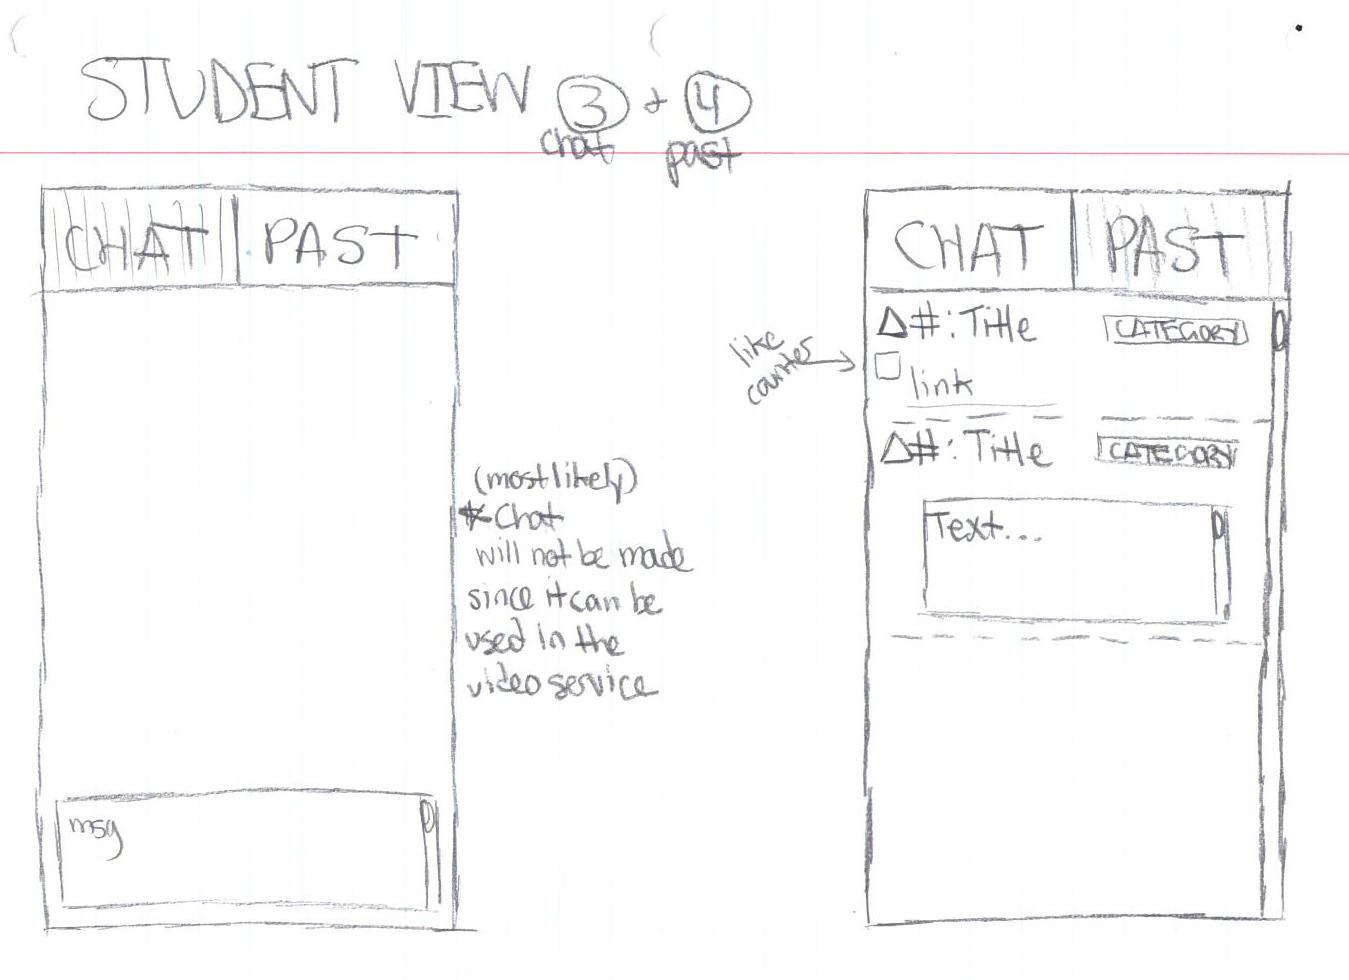 STUDENT VIEW 3 + 4
chat past
CHAT PAST
msg
(most likely)
* Chat
will not be made
since it can be
used in the
video service
CHAT PAST
like
counter
Δ#: Title CATEGORY
link
Δ#: Title CATEGORY
Text...